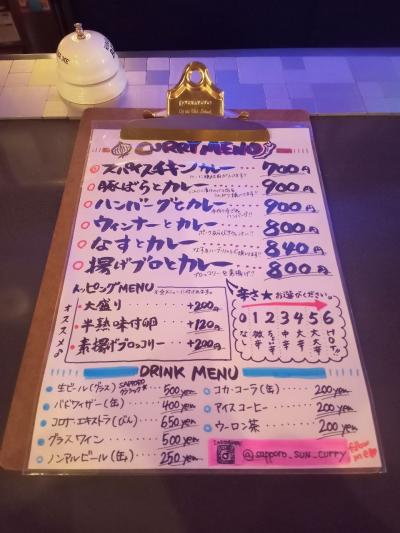 CURRY MENU
スパイスチキンカレー 700円
豚ばらとカレー 900円
ハンバーグとカレー 900円
ウィンナーとカレー 800円
なすとカレー 840円
揚げブロとカレー 800円
トッピングMENU
オススメ
大盛り +200円
半熟味付卵 +120円
素揚げブロッコリー +200円
辛さ★お選びください。
0 1 2 3 4 5 6
なし 微辛 中辛 大辛 HOT
DRINK MENU
生ビール(グラス) SAPPORO クラシック 500yen
バドワイザー(缶) 400yen
コロナ・エキストラ(びん) 650yen
グラスワイン 500yen
ノンアルビール(缶) 250yen
コカ・コーラ(缶) 200yen
アイスコーヒー 200yen
ウーロン茶 200yen
Instagram
@sapporo_sun_curry
follow me